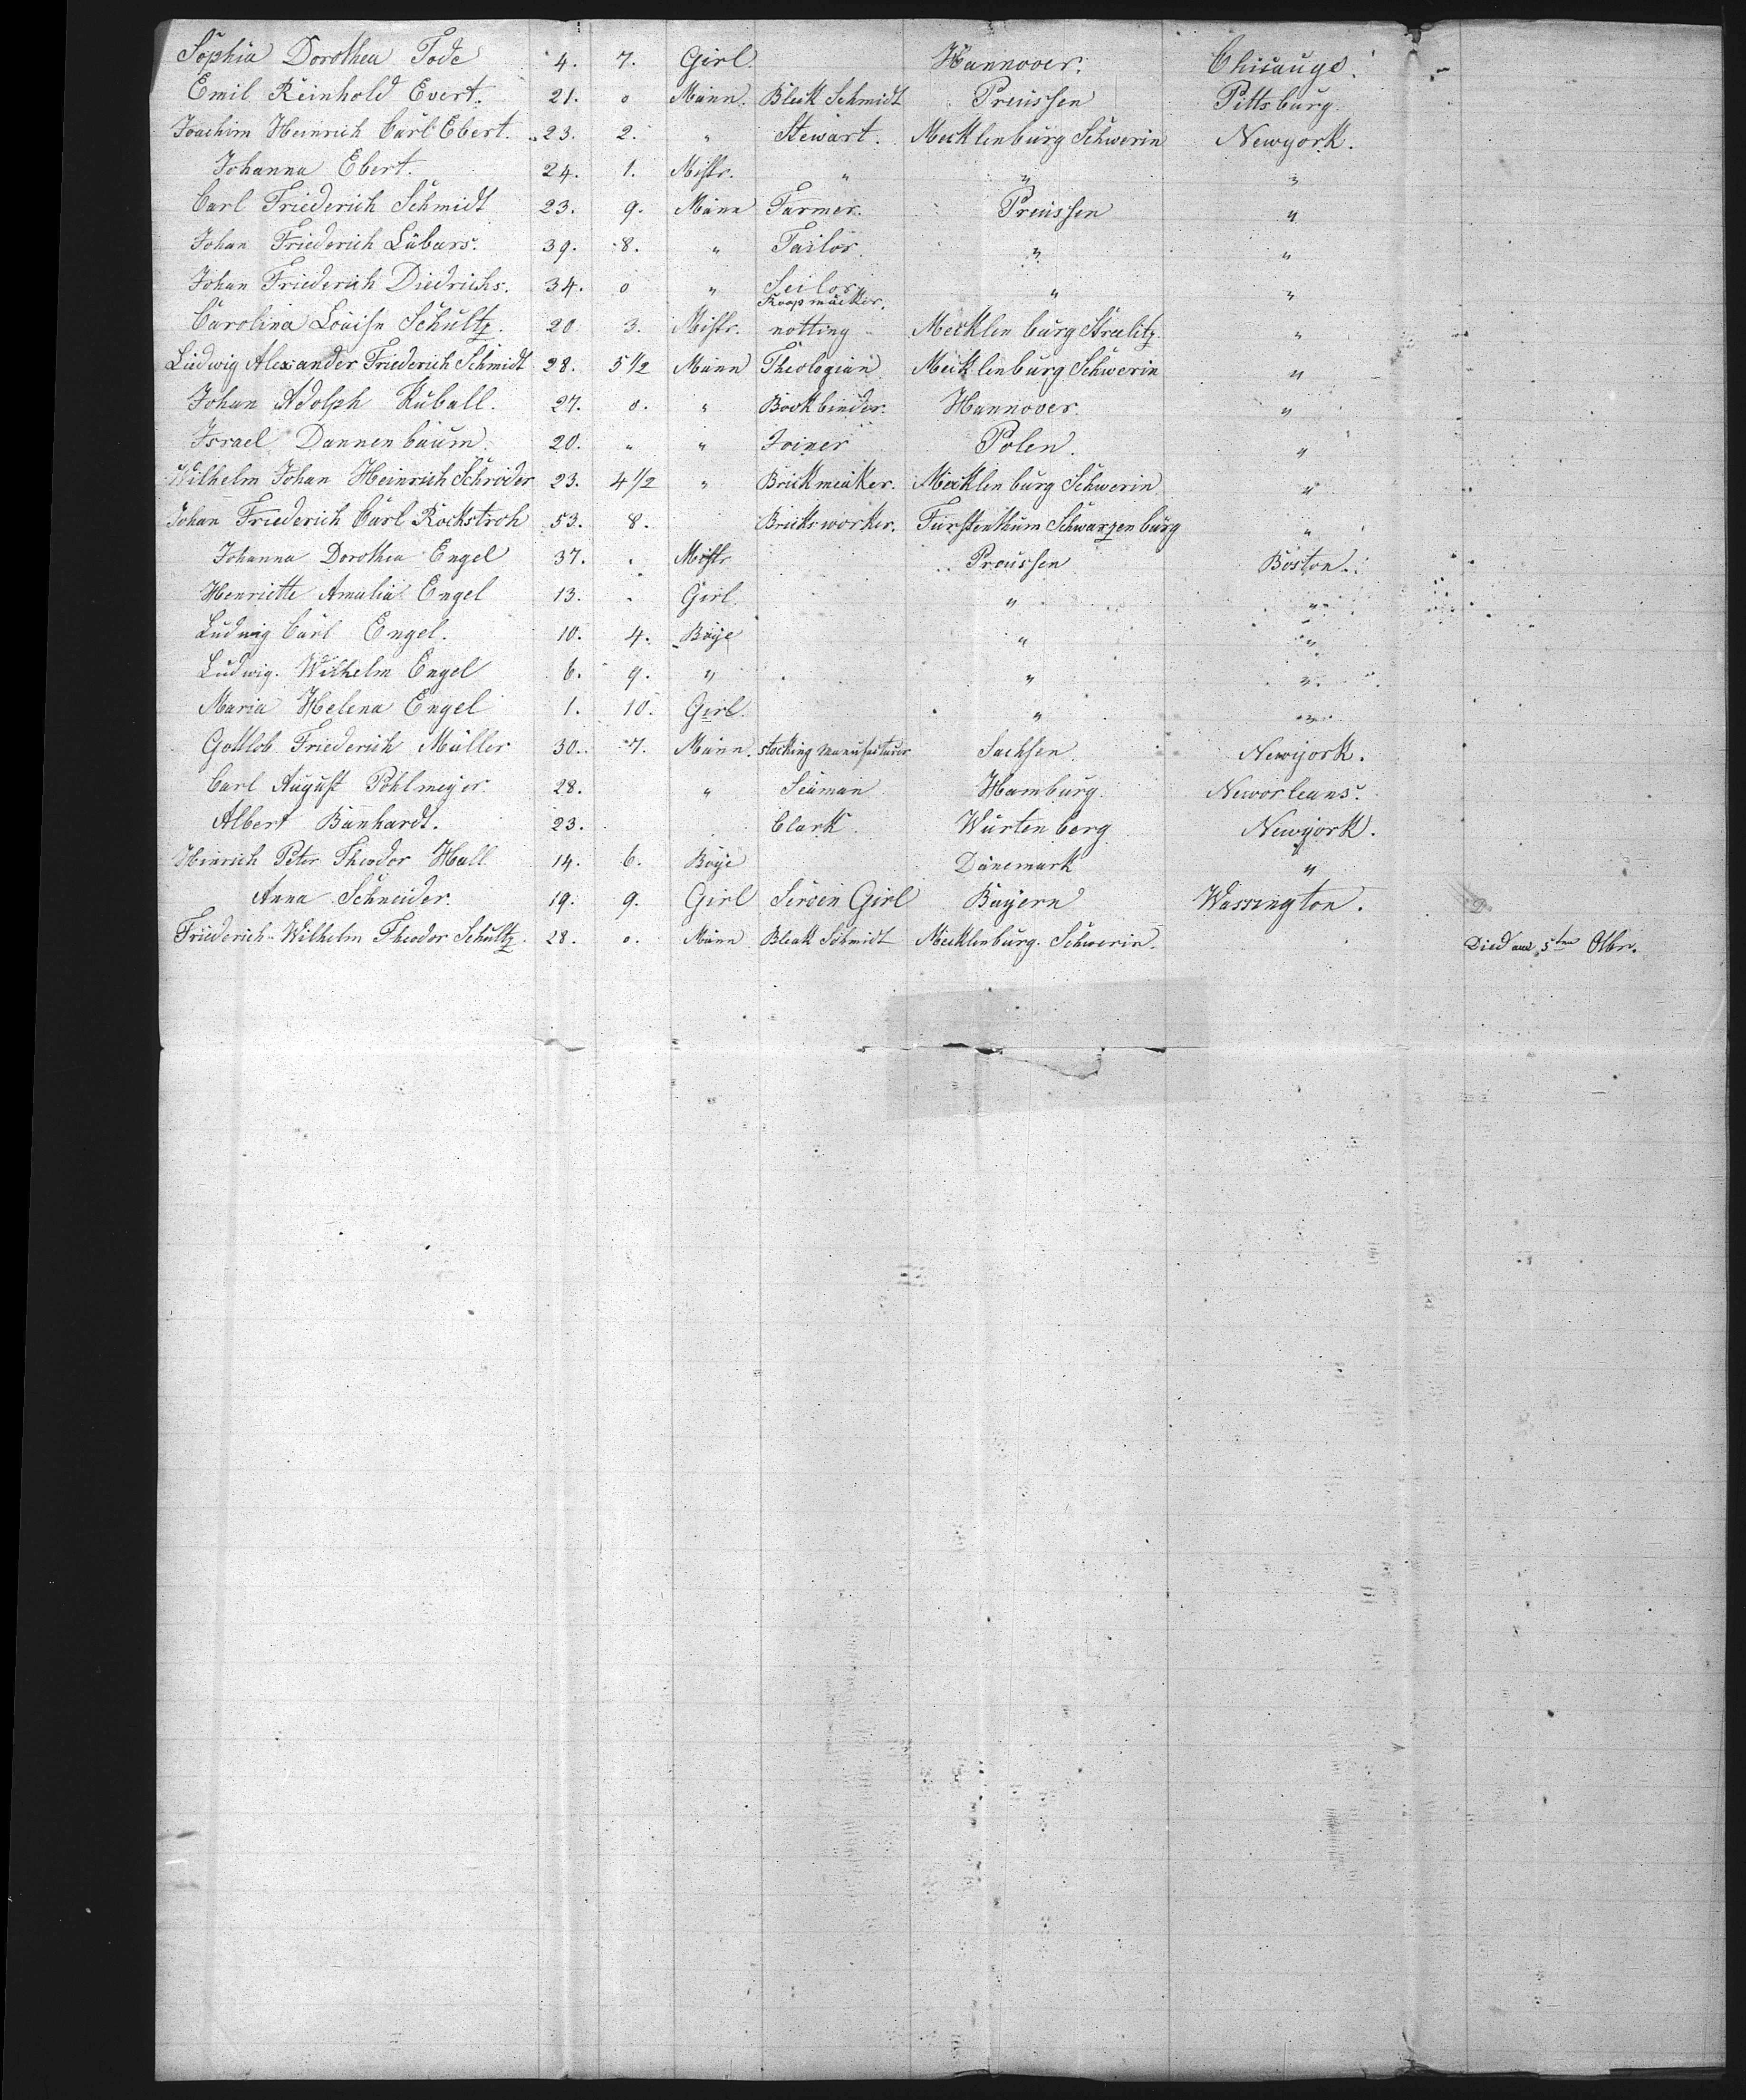 Sophia Dorothea Tode 4. 7. Girl Hannover. Chicaugo.
Emil Reinhold Evert. 21. 0 Mann. Bleck Schmidt Preussen Pittsburg
Joachim Heinrich Carl Ebert. 23. 2. " Stewart. Mecklenburg Schwerin Newyork.
Johanna Ebert. 24. 1. Misstr. " " "
Carl Friederich Schmidt 23. 9. Mann Farmer. Preussen "
Johan Friederich Lübars. 39. 8. " Tailor. " "
Johan Friederich Diedrichs. 34. 0 " Seilor " "
Roopmäcker.
Carolina Louise Schultz. 20 3. Misstr. notting Mecklenburg Strelitz "
Ludwig Alexander Friederich Schmidt 28. 5 1/2 Mann Theologian Mecklenburg Schwerin "
Johan Adolph Kuball. 27. 0. " Bookbinder. Hannover "
Israel Dannenbaum 20. " " Joiner Polen. "
Wilhelm Johan Heinrich Schröder 23. 4 1/2 " Brickmeaker. Mecklenburg Schwerin "
Johan Friederich Carl Rockstroh 53. 8. Bricksworker. Fürstenthum Schwarzenburg "
Johanna Dorothea Engel 37. . Misstr Preussen Boston.
Henriette Amalia Engel 13. . Girl. " "
Ludwig Carl Engel. 10. 4. Boye " "
Ludwig. Wilhelm Engel 6. 9. " " "
Maria Helena Engel 1. 10. Girl. " "
Gottlob Friederich Müller 30. 7. Mann. stocking manufacturer Sachsen. Newyork.
Carl August Pohlmeyer 28. " Seaman Hamburg. Neworleans.
Albert Banhardt. 23. Clark. Würtenberg Newyork.
Hinrich Peter Theodor Hall 14. 6. Boye Dänemark "
Anna Schneider. 19. 9. Girl Serven Girl Bayern Wassington.
Friederich Wilhelm Theodor Schultz. 28. 0. Mann Bleak Schmidt Mecklenburg Schwerin. Died am 5ten Otbr.